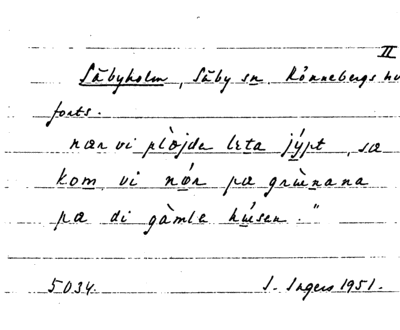 II
Säbyholm, Säby sn Rönnebergs
forts.
nær vi plòjde lɛta jýpt, sæ
kom vi nǿr pæ grùnana
pæ di gàmle húsen."
5034. I. Ingers 1951.